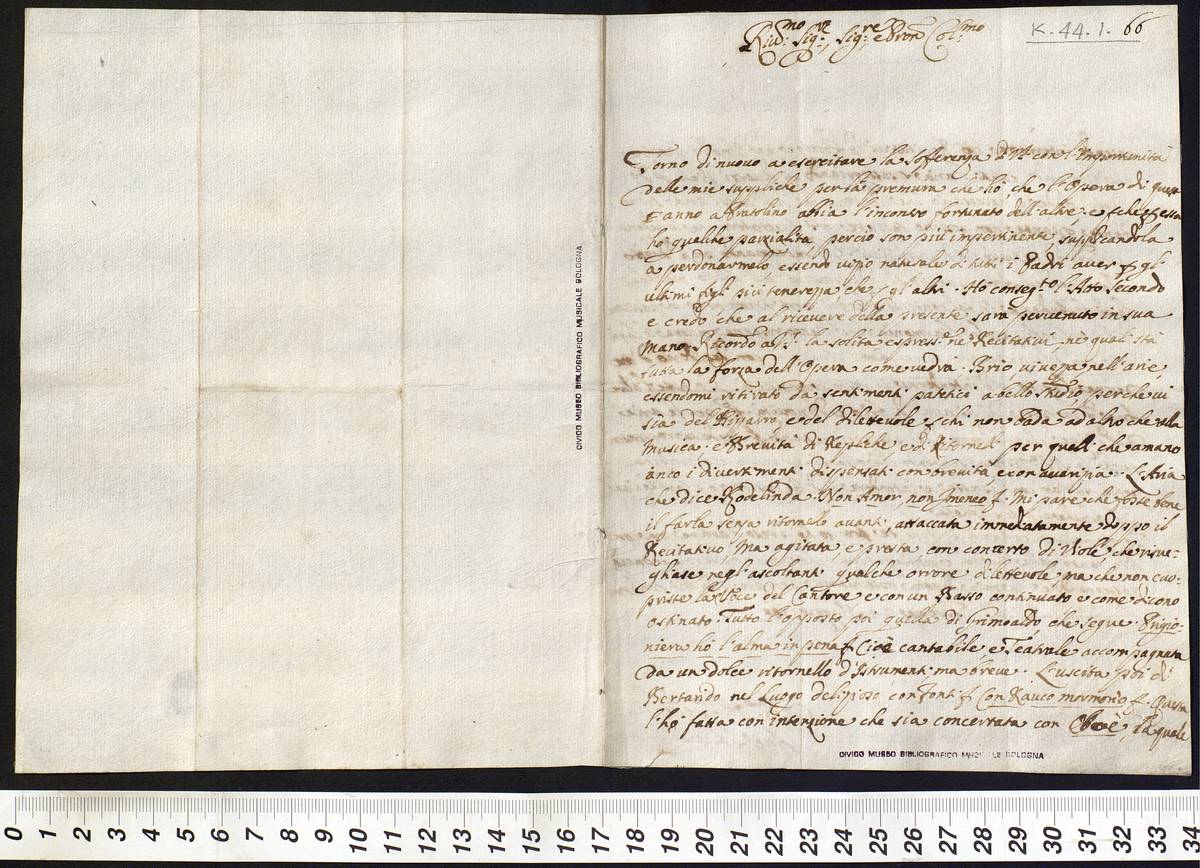 K. 44. 1. 66
Rev:mo Sig:re, Sig:re e Pron Col:mo
Torno di nuovo a esercitare la sofferenza di V.S. con l'Importunità
delle mie suppliche per la premura che hò, che l'Opera di quest'
anno a Pratolino abbia l'incontro fortunato dell'altre; e
hò qualche parzialità, perciò son più impertinente, supplicandola
a perdonarmelo, essend vizio naturale di tutti i Padri aver p gl'
ultimi figli più tenerezza, che p gl'altri. Hò conseg.to l'Atto Secondo
e credo che al ricevere della presente sarà pervenuto in sua
mano. Ricordo a la solita espress.ne ne' Recitativi, ne' quali stà
tutta la forza dell'Opera come vedrà. Brio vivezza nell'arie,
essendomi ritirato da sentimenti patetici a bello studio, perche vi
sia del Bizzarro, e del dilettevole p chi non bada ad altro che alla
Musica. e Brevità di Repliche, e di Ritornelli per quelli che amano
anco i divertimenti dispensati con brevità, e con avarizia. L'Aria
che dice Rodelinda. Non Amor, non Imeneo &. Mi pare che fosse bene
il farla senza ritornello avanti, attaccata immediatamente doppo il
Recitativo, Ma agitata e presta, con concerto di Viole, che risve-
gliase negl'ascoltanti qualche orrore dilettevole, ma che non cuo-
prisse la Voce del Cantore e con un Basso continuato e come dicono
ostinato. Tutto l'opposto poi quella di Grimoaldo, che segue. Prigio-
niera hò l'alma in pena & Cioè cantabile, e Teatrale accompagnata
da un dolce ritornello d'Istrumenti ma breve. L'uscita poi di
Bertarido nel Luogo delizioso con fonti &. Con Rauco mormorio &. Questa
l'hò fatta con intenzione che sia concertata con Oboè, la quale
DIVIDO MUSEO BIBLIOGRAFICO MUSICALE BOLOGNA
DIVIDO MUSEO BIBLIOGRAFICO MUSICALE BOLOGNA
0 1 2 3 4 5 6 7 8 9 10 11 12 13 14 15 16 17 18 19 20 21 22 23 24 25 26 27 28 29 30 31 32 33 34